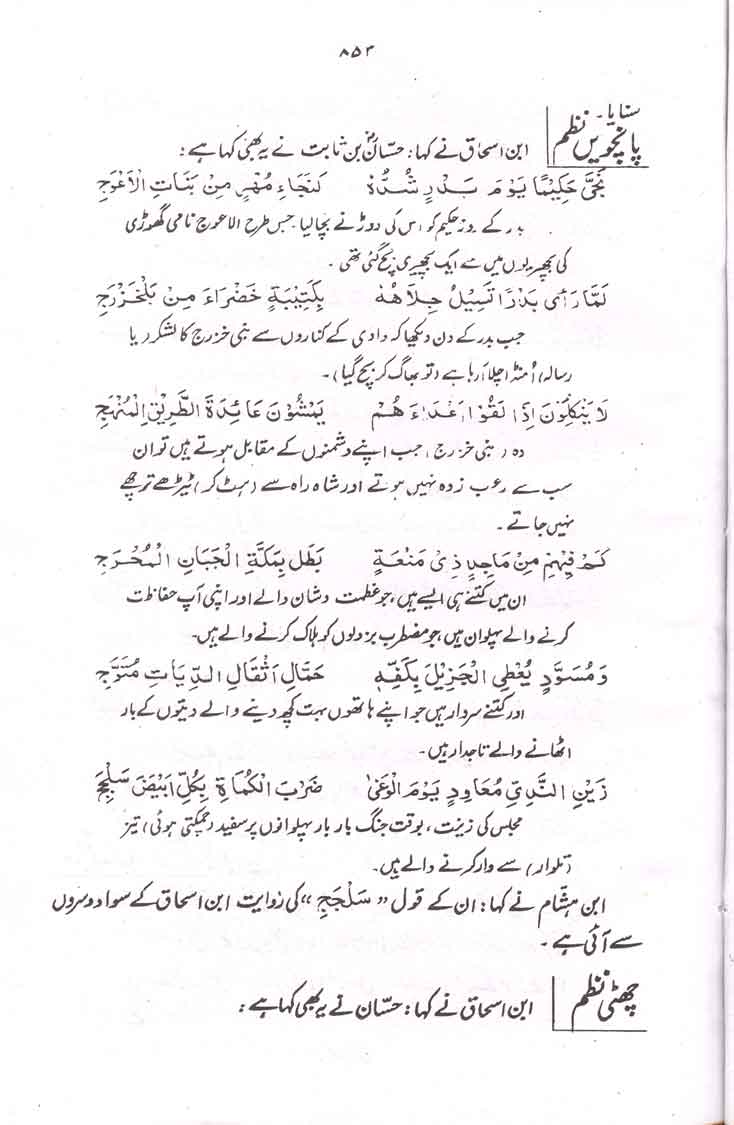 ۸۵۳
سنایا۔
پانچویں نظم
ابن اسحاق نے کہا: حسّانؓ بن ثابت نے یہ بھی کہا ہے:
نَجَّى حَكِيْمًا يَوْمَ بَدْرٍ شَدُّهٗ كَنَجَاءِ مُهْرٍ مِنْ بَنَاتِ الْاَعْوَجِ
بدر کے روز حکیم کو اس کی دوڑنے بچا لیا جس طرح الاعوج نامی گھوڑی
کی بچھیریوں میں سے ایک بچھیری بچ گئی تھی۔
لَمَّا رَاٰى بَدْرًا تَسِيْلُ جِلَاهُهٗ بِكَتِيْبَةٍ خَضْرَاءَ مِنْ بَلْخَزْرَجِ
جب بدر کے دن دیکھا کہ وادی کے کناروں سے بنی خزرج کا لشکر (یا
رسالہ) اُمنڈا چلا آ رہا ہے (تو بھاگ کر بچ گیا)۔
لَا يَنْكِلُوْنَ اِذَا لَقُوْا اَعْدَاءَهُمْ يَمْشُوْنَ عَائِدَةَ الطَّرِيْقِ الْمُنْهَجِ
وہ (بنی خزرج) جب اپنے دشمنوں کے مقابل ہوتے ہیں تو ان
سب سے رعب زدہ نہیں ہوتے اور شاہ راہ سے (ہٹ کر) ٹیڑھے ترچھے
نہیں جاتے۔
كَمْ فِيْهِمْ مِنْ مَاجِدٍ ذِيْ مَنْعَةٍ بَطَلٍ بِمَكَّةِ الْجَبَانِ الْمُحْرَجِ
ان میں کتنے ہی ایسے ہیں، جو عظمت و شان والے اور اپنی آپ حفاظت
کرنے والے پہلوان ہیں، جو مضطرب بزدلوں کو ہلاک کرنے والے ہیں۔
وَمُسَوَّدٍ يُعْطِي الْجَزِيْلَ بِكَفِّهٖ حَمَّالِ اَثْقَالِ الدِّيَاتِ مُتَوَّجِ
اور کتنے سردار ہیں جو اپنے ہاتھوں بہت کچھ دینے والے دیتوں کے بار
اٹھانے والے تاجدار ہیں۔
زَيْنِ النَّدِيِّ مُعَاوِدٍ يَوْمَ الْوَغٰى ضَرْبَ الْكُمَاةِ بِكُلِّ اَبْيَضَ سَلْجَجِ
مجلس کی زینت، بوقت جنگ بار بار پہلوانوں پر سفید (چمکتی ہوئی) تیز
(تلوار) سے وار کرنے والے ہیں۔
ابن ہشام نے کہا: ان کے قول ”سَلْجَجِ“ کی روایت ابن اسحاق کے سوا دوسروں
سے آئی ہے۔
چھٹی نظم
ابن اسحاق نے کہا: حسّان نے یہ بھی کہا ہے: